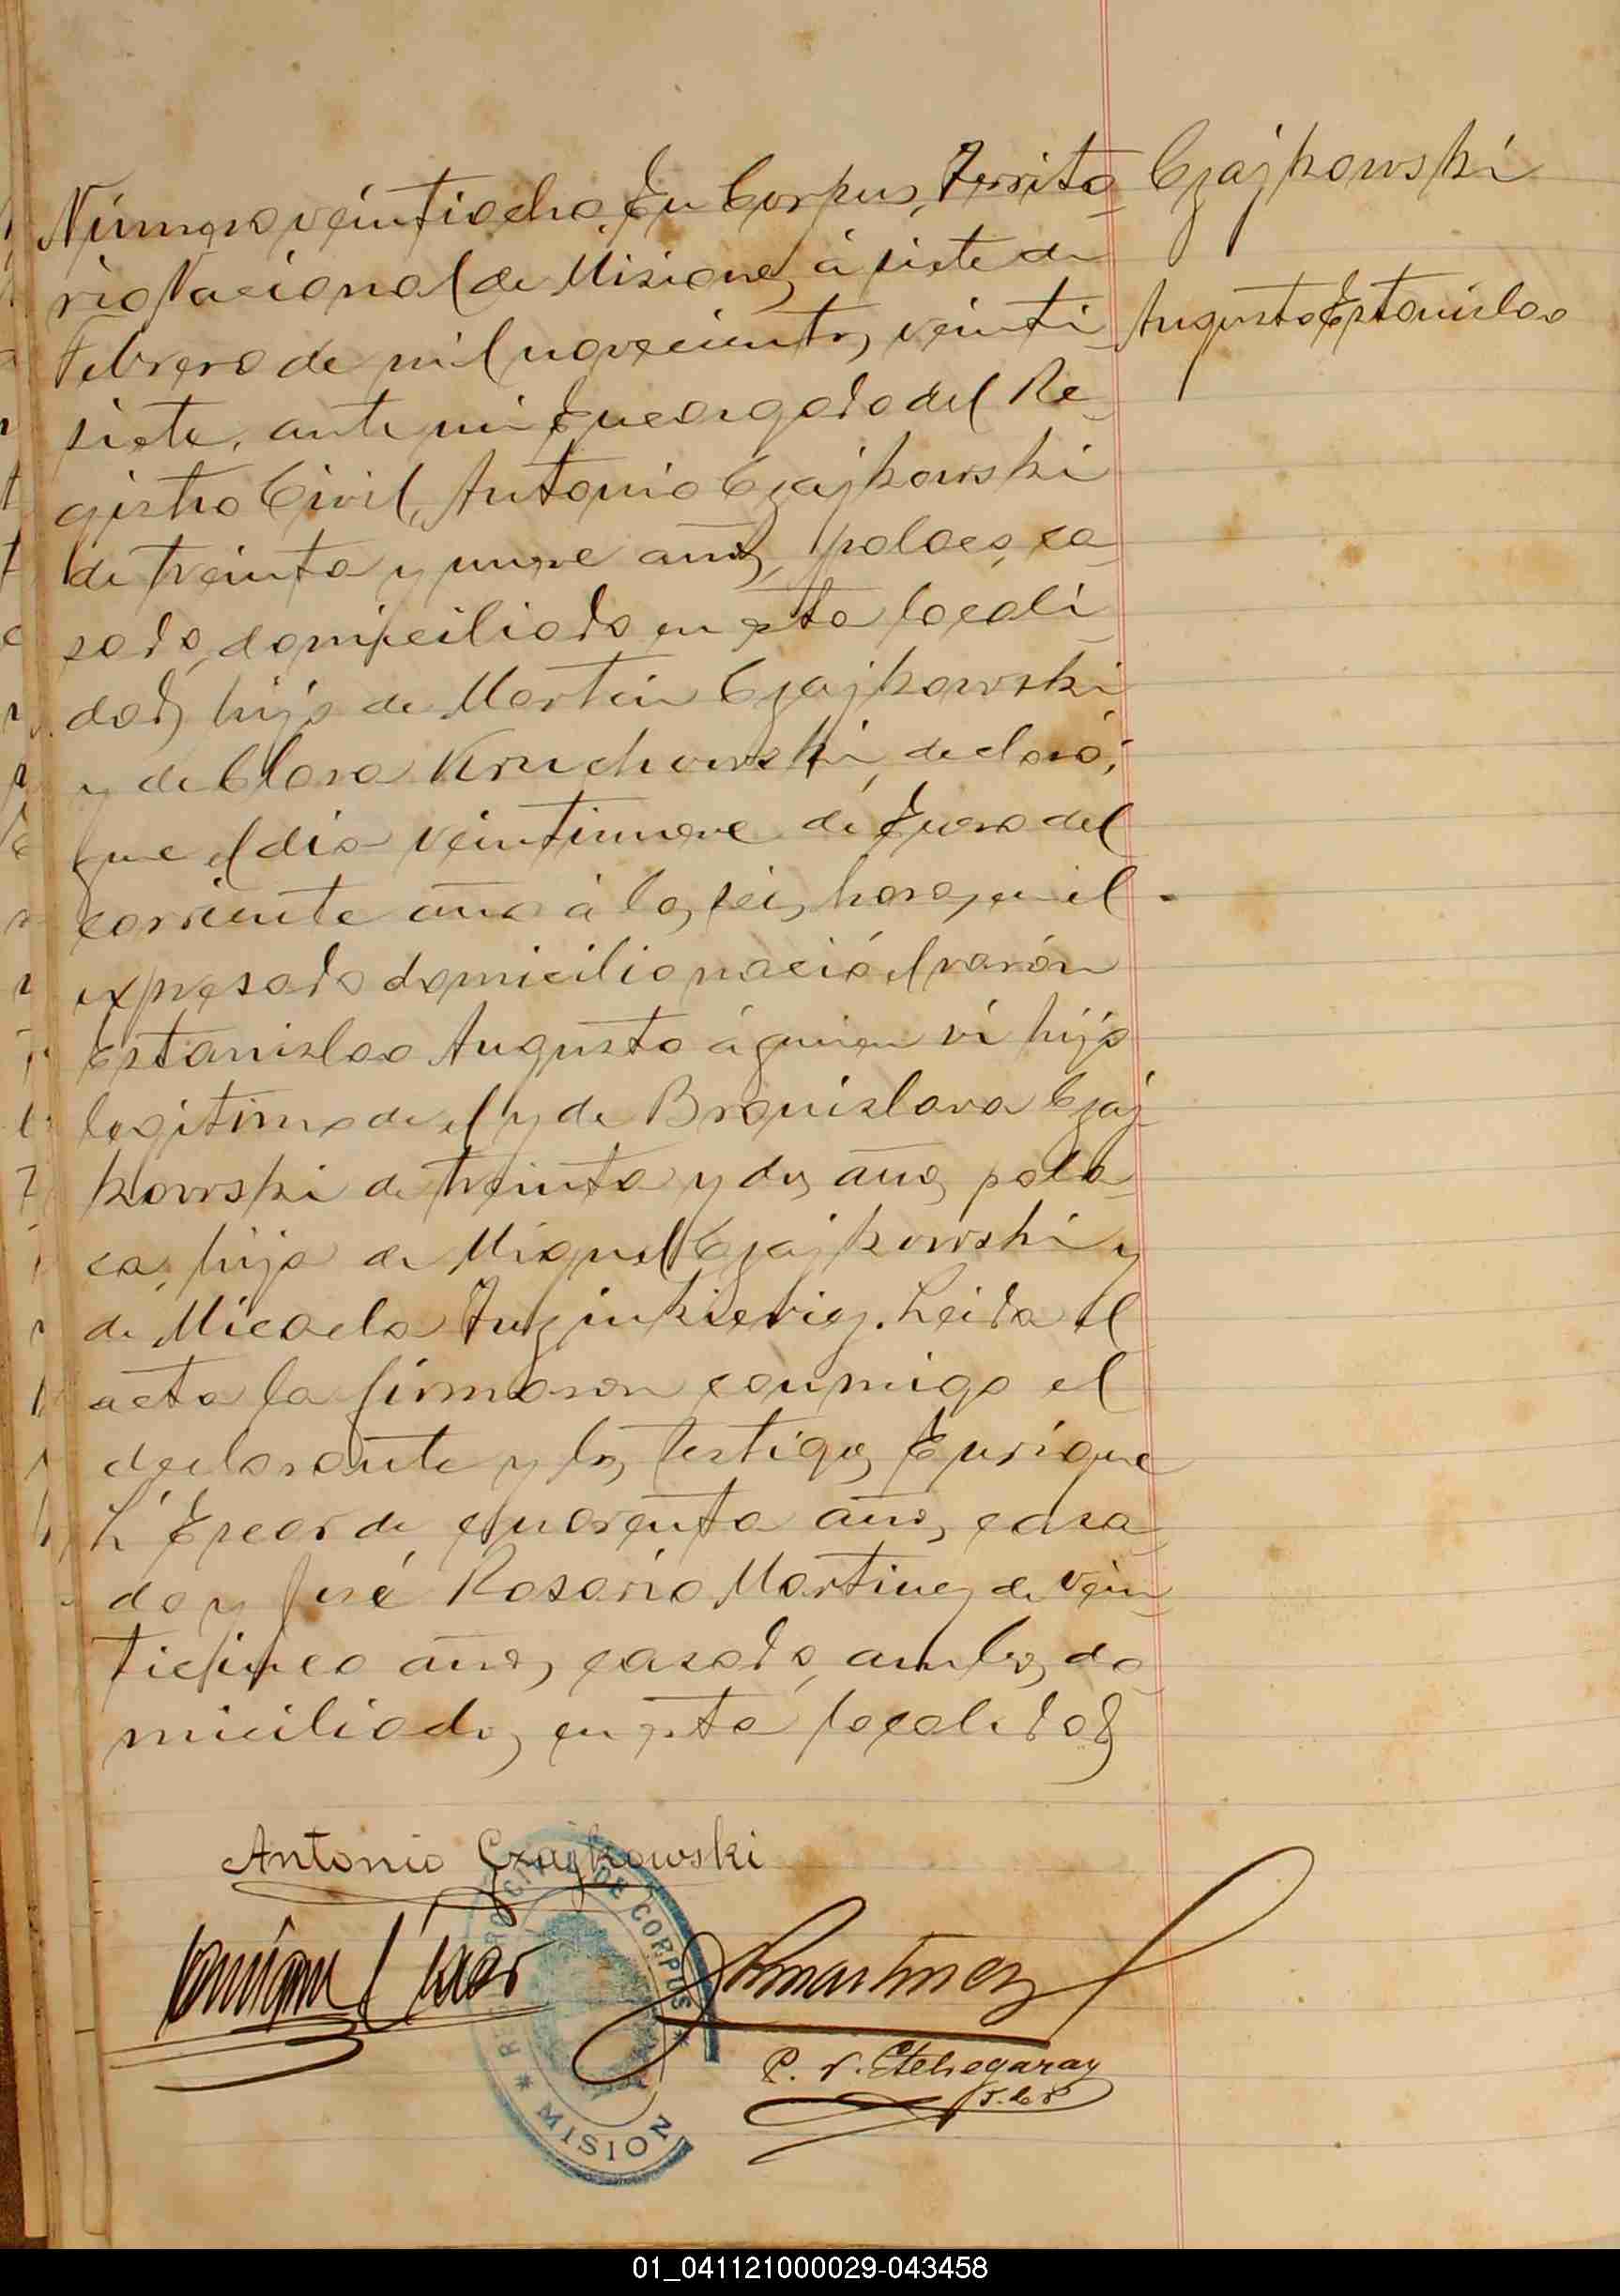 Czajkowski
Augusto Estanislao
Número veintiocho. En Corpus, Territo-
rio Nacional de Misiones, á siete de
Febrero de mil novecientos veinti-
siete, ante mi Encargado del Re-
gistro Civil, Antonio Czajkowski
de treinta y nueve años, polaco, ca-
sado, domiciliado en esta locali-
dad, hijo de Martin Czajkowski
y de Clara Kruchowski, declaró;
que el dia veintinueve de Enero del
corriente año á las seis horas, en el
expresado domicilio nació el varón
Estanislao Augusto á quien vi hijo
legitimo de el y de Bronislava Czaj-
kowski de treinta y dos años, pola-
ca, hija de Miguel Czajkowski y
de Micaela Leida el
acta la firmaron conmigo el
declarante y los testigos Enrique
L'Epear de cuarenta años, casa-
do y José Rosario Martinez de vein-
ticinco años, casado, ambos do-
miciliados en esta localidad
Antonio Czajkowski
JRMartinez
P. V. Etchegaray
REGISTRO CIVIL DE CORPUS
* MISION
01_041121000029-043458